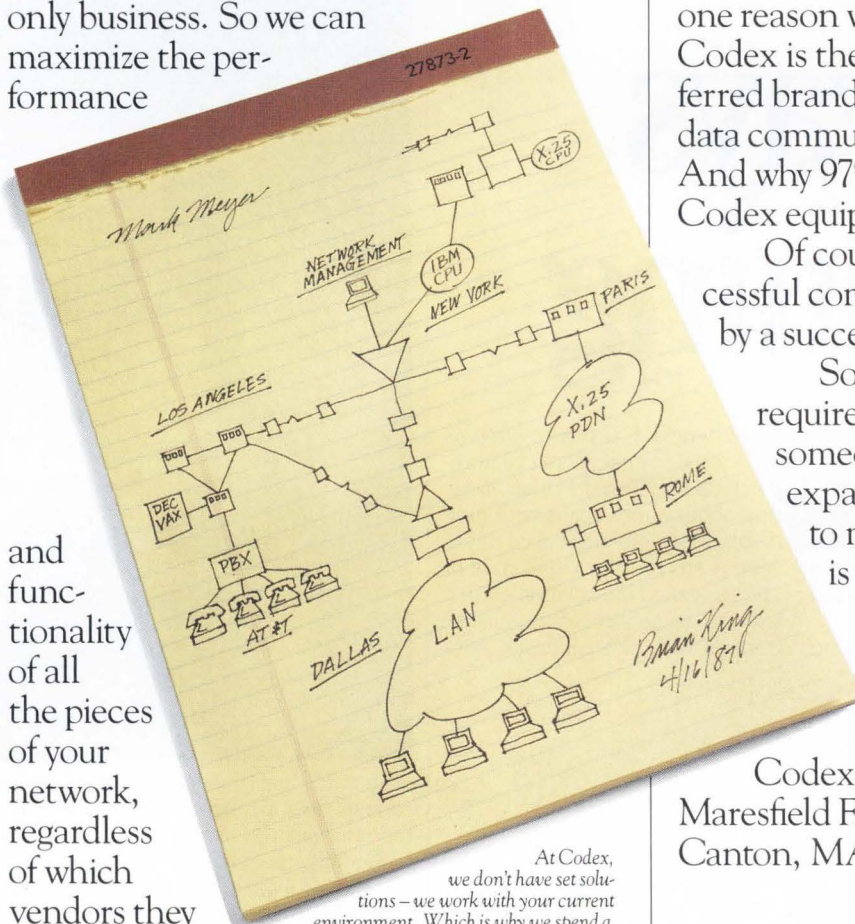 only business. So we can
maximize the per-
formance
and
func-
tionality
of all
the pieces
of your
network,
regardless
of which
vendors they
27873-2
Mark Meyer
NETWORK
MANAGEMENT
IBM
CPU
X.25
CPU
NEW YORK
PARIS
LOS ANGELES
X.25
PDN
DEC
VAX
PBX
AT&T
ROME
DALLAS
LAN
Brian King
4/16/87
At Codex,
we don't have set solu-
tions – we work with your current
environment. Which is why we spend a
one reason
Codex is the
ferred brand
data commu
And why 97
Codex equip
Of cou
cessful con
by a succe
So
require
some
expa
to
is
Codex
Maresfield F
Canton, MA